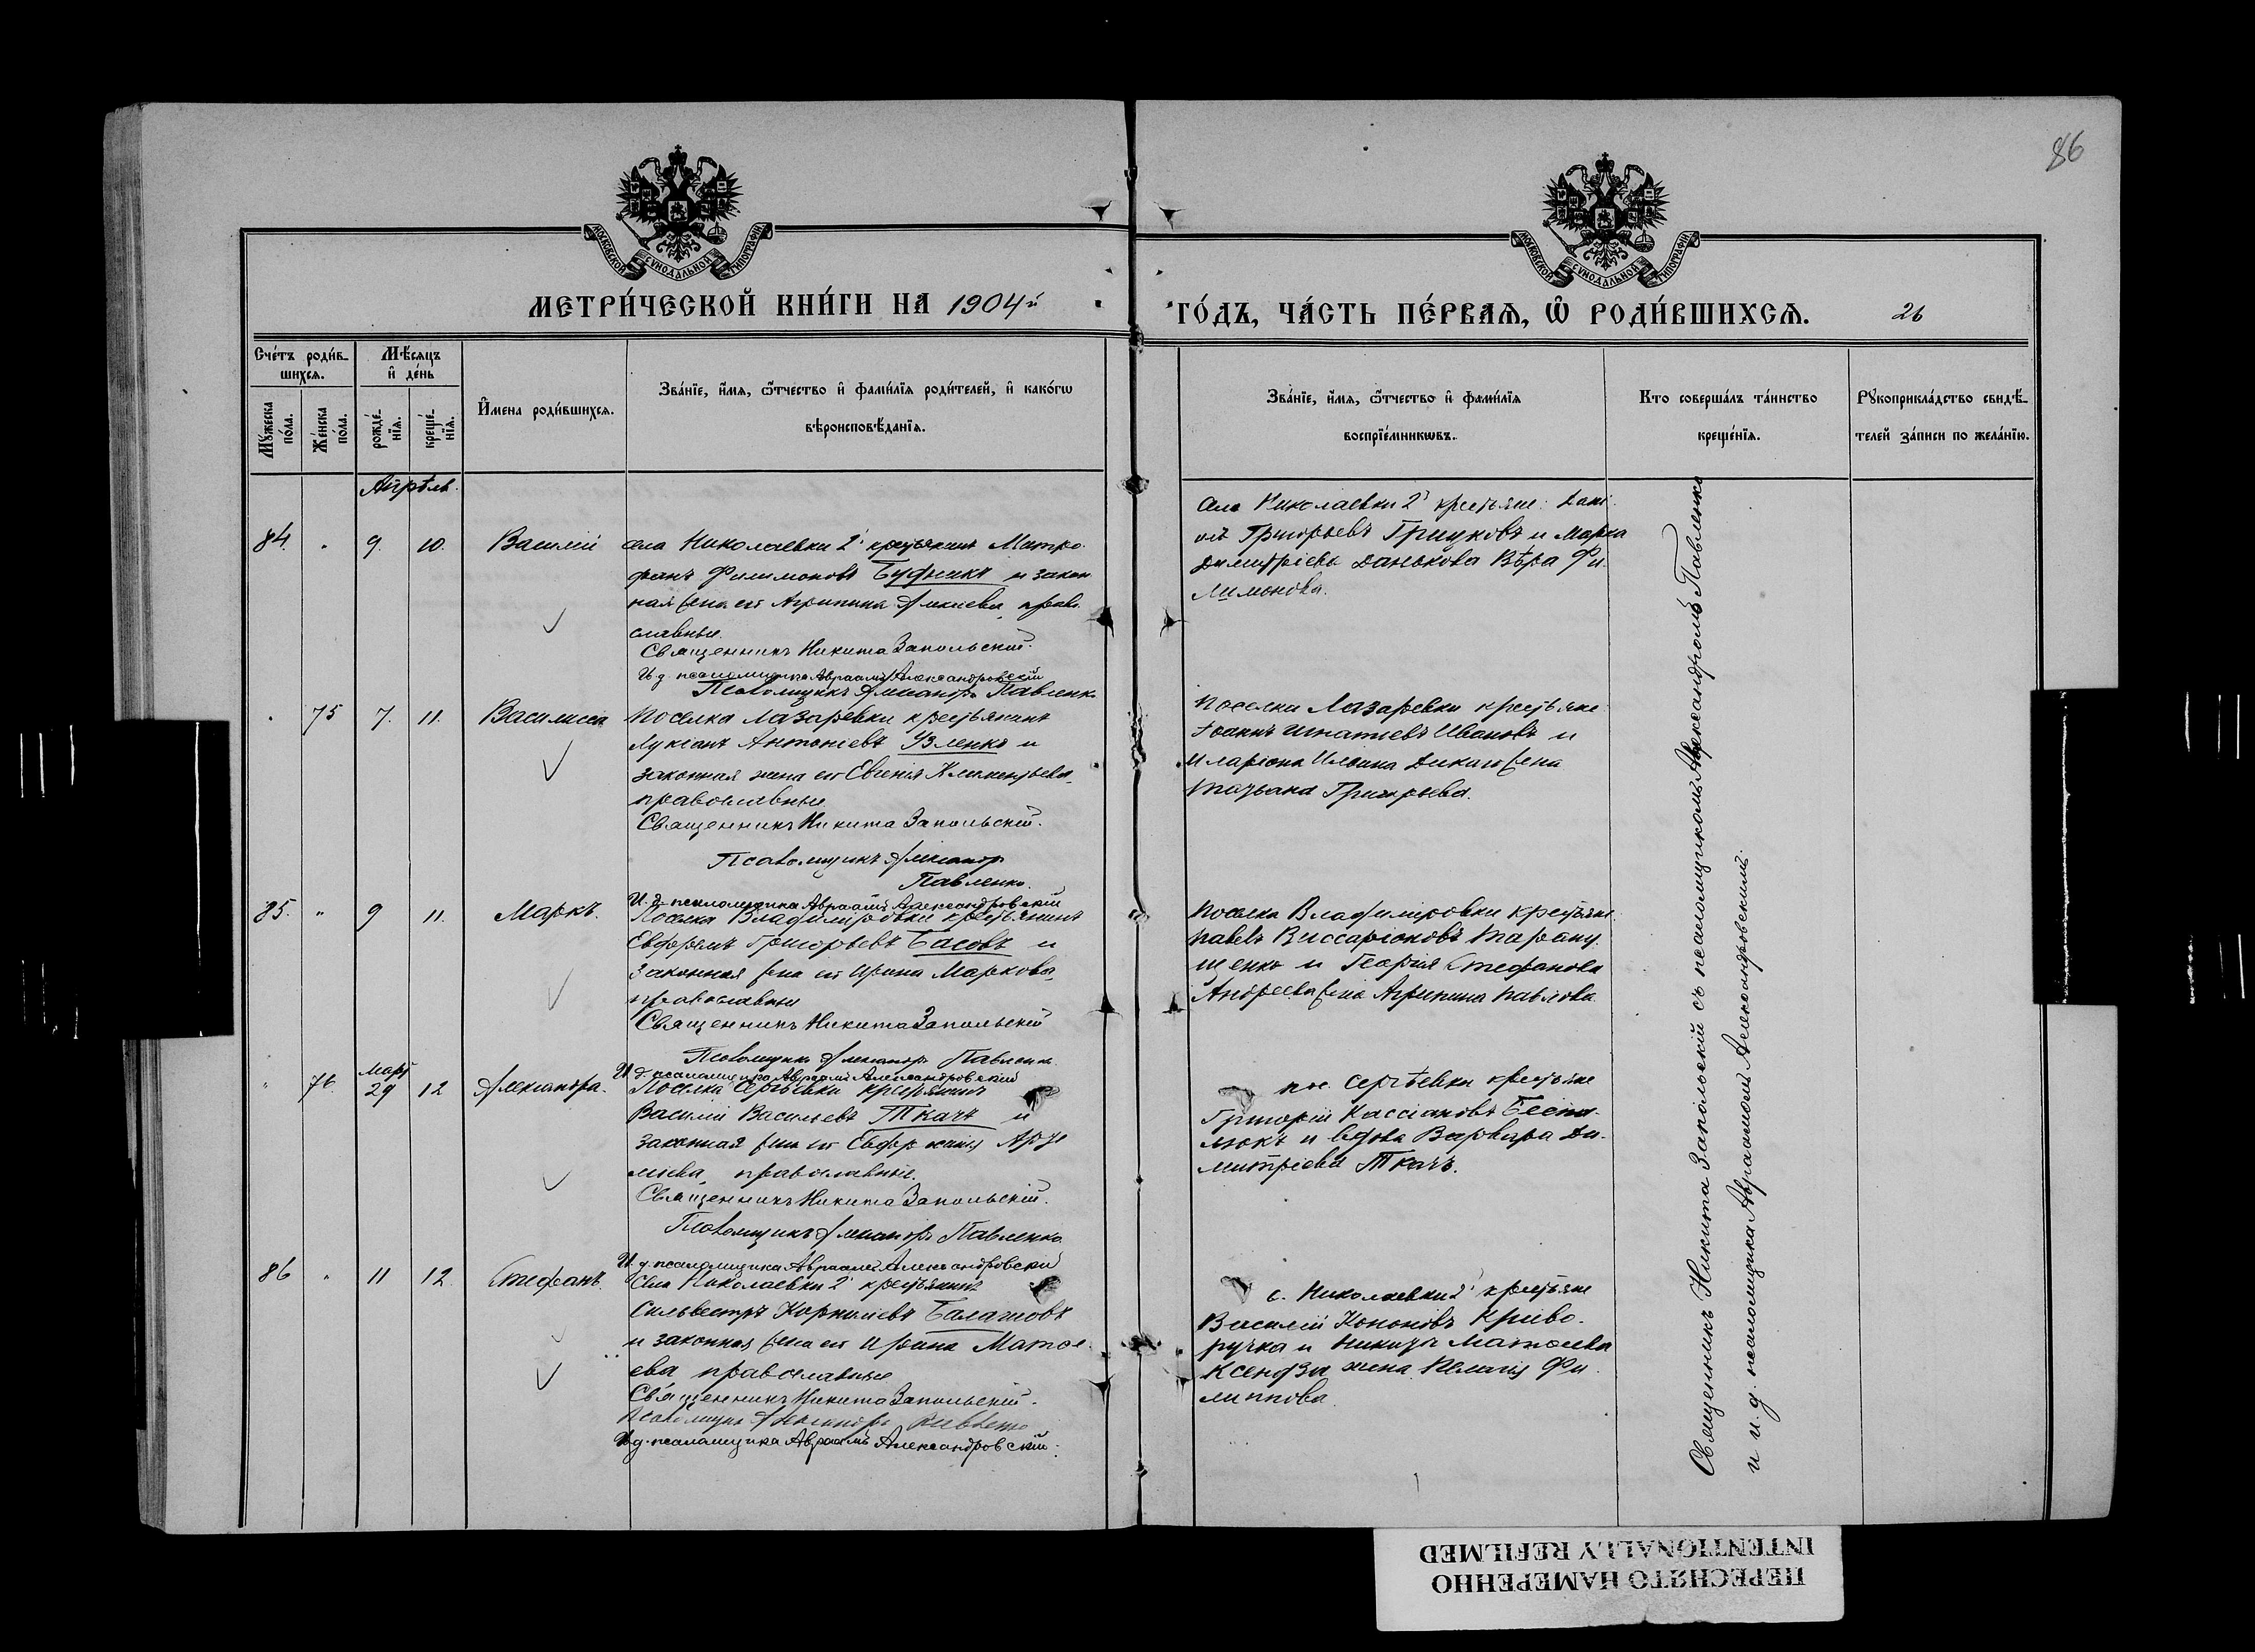 86
МОСКОВСКОЙ СѴНОДАЛЬНОЙ ТИПОГРАФІИ
МОСКОВСКОЙ СѴНОДАЛЬНОЙ ТИПОГРАФІИ
МЕТРИ́ЧЕСКОЙ КНИ́ГИ НА 1904й
ГО́ДЪ, ЧА́СТЬ ПЕ́РВАѦ, Ѡ РОДИ́ВШИХСѦ. 26
Сче́тъ роди́вшихсѧ.
Мꙋ́жеска по́ла.
Же́нска по́ла.
Мѣ́сѧцъ и҆ де́нь
рожде́нїѧ.
креще́нїѧ.
И҆мена роди́вшихсѧ.
Зва́нїе, и҆́мѧ, ѻ҆́тчество и҆ фами́лїѧ роди́телей, и҆ како́гѡ
вѣроисповѣ́данїѧ.
Зва́нїе, и҆́мѧ, ѻ҆́тчество и҆ фами́лїѧ
воспрїе́мникѡвъ.
Кто соверша́лъ та́инство
креще́нїѧ.
Рꙋкоприкла́дство свидѣ́-
телей за́писи по жела́нїю.
Апрѣль.
84. " 9. 10. Василій
села Николаевки 2й крестьянинъ Митро-
фанъ Филимоновъ Будникъ и закон
ная жена его Агрипина Алексіева, право
славные.
Священникъ Никита Запольскій.
И. д. псаломщика Авраамъ Александровскій
Псаломщикъ Александръ Павленко
села Николаевки 2й крестьяне: Дані-
илъ Григорьевъ Грицковъ и Марка
Димитріева Данькова Вѣра Фи-
лимонова.
" 75 7. 11. Василисса
Поселка Лазаревки крестьянинъ
Лукіанъ Антоніевъ Узленко и
законная жена его Евгенія Климентьева,
православные.
Священникъ Никита Запольскій.
Псаломщикъ Александръ
Павленко.
И. д. псаломщика Авраамъ Александровскій
поселки Лазаревки крестьяне
Іоаннъ Игнатіевъ Ивановъ и
Иларіона Илiина жена
Татьяна Григорьева.
85. " 9 11. Маркъ.
Поселка Владиміровки крестьянинъ
Евфремъ Григорьевъ Басовъ и
законная жена его Ирина Маркова,
православные
Священникъ Никита Запольскій
Псаломщикъ Александръ Павленко.
И. д. псаломщика Авраамъ Александровскій
поселка Владиміровки крестьяне
Павелъ Виссаріоновъ Таранущенко и Георгія Стефанова
Андреева жена Агрипина Павлова
" 76. Март 29 12 Александра.
Поселка Сергѣевки крестьянинъ
Василій Васильевъ Ткачъ и
законная жена его Евфросинія Арте
міева, православные.
Священникъ Никита Запольскій.
Псаломщикъ Александръ Павленко
И. д. псаломщика Авраамъ Александровскій
пос. Сергѣевки крестьяне
Григорій Кассіановъ
и вдова Варвара Ди-
митріева Ткачъ.
86 " 11 12. Стефанъ.
Села Николаевки 2й крестьянинъ
Сильвестръ Корниліевъ Балашовъ
и законная жена его Ирина Матѳе-
ева православные
Священникъ Никита Запольскій.
Псаломщикъ Александръ Павленко
И.д. псаломщика Авраамъ Александровскій.
с. Николаевки 2й крестьяне
Василій Кононовъ Криво-
ручка и Никиты Матѳеева
Ксендза жена Пелагія Фи-
липпова.
Священникъ Никита Запольскій съ псаломщикомъ Александромъ Павленко
и и. д. псаломщика Авраамомъ Александровскимъ.
ПЕРЕСНЯТО НАМЕРЕННО
INTENTIONALLY REFILMED